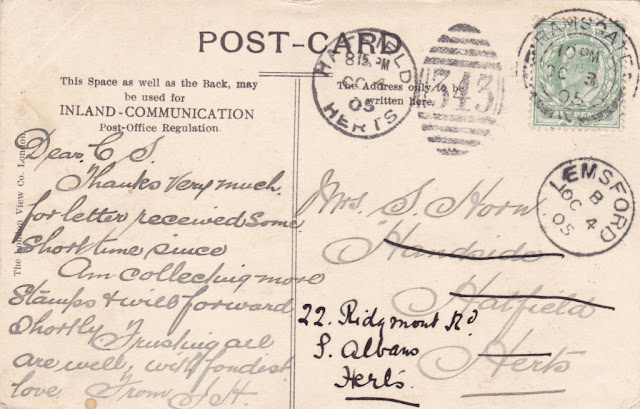 POST-CARD
This Space as well as the Back, may
be used for
INLAND-COMMUNICATION
Post-Office Regulation.
The Address only to be
written here.
The London View Co. London
HATFIELD
8 15 PM
OC 4
05
HERTS
343
RAMSGATE
10 PM
OC 3
05
LEMSFORD
B
OC 4
05
Dear C S.
Thanks very much
for letter received some
short time since
Am collecting more
Stamps & will forward
shortly Trusting all
are well, with fondest
love From S.H.
Mrs. S. Horn
Handside
Hatfield
Herts
22. Ridgmont Rd
S. Albans
Herts.